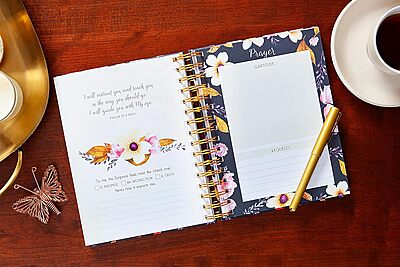 I will instruct you and teach you
in the way you should go;
I will guide you with My eye.
To me this Scripture feels most like (check one):
A PROMISE AN INSTRUCTION A TRUTH
Here's how it impacts me:
Prayer
GRATITUDE
REQUESTS